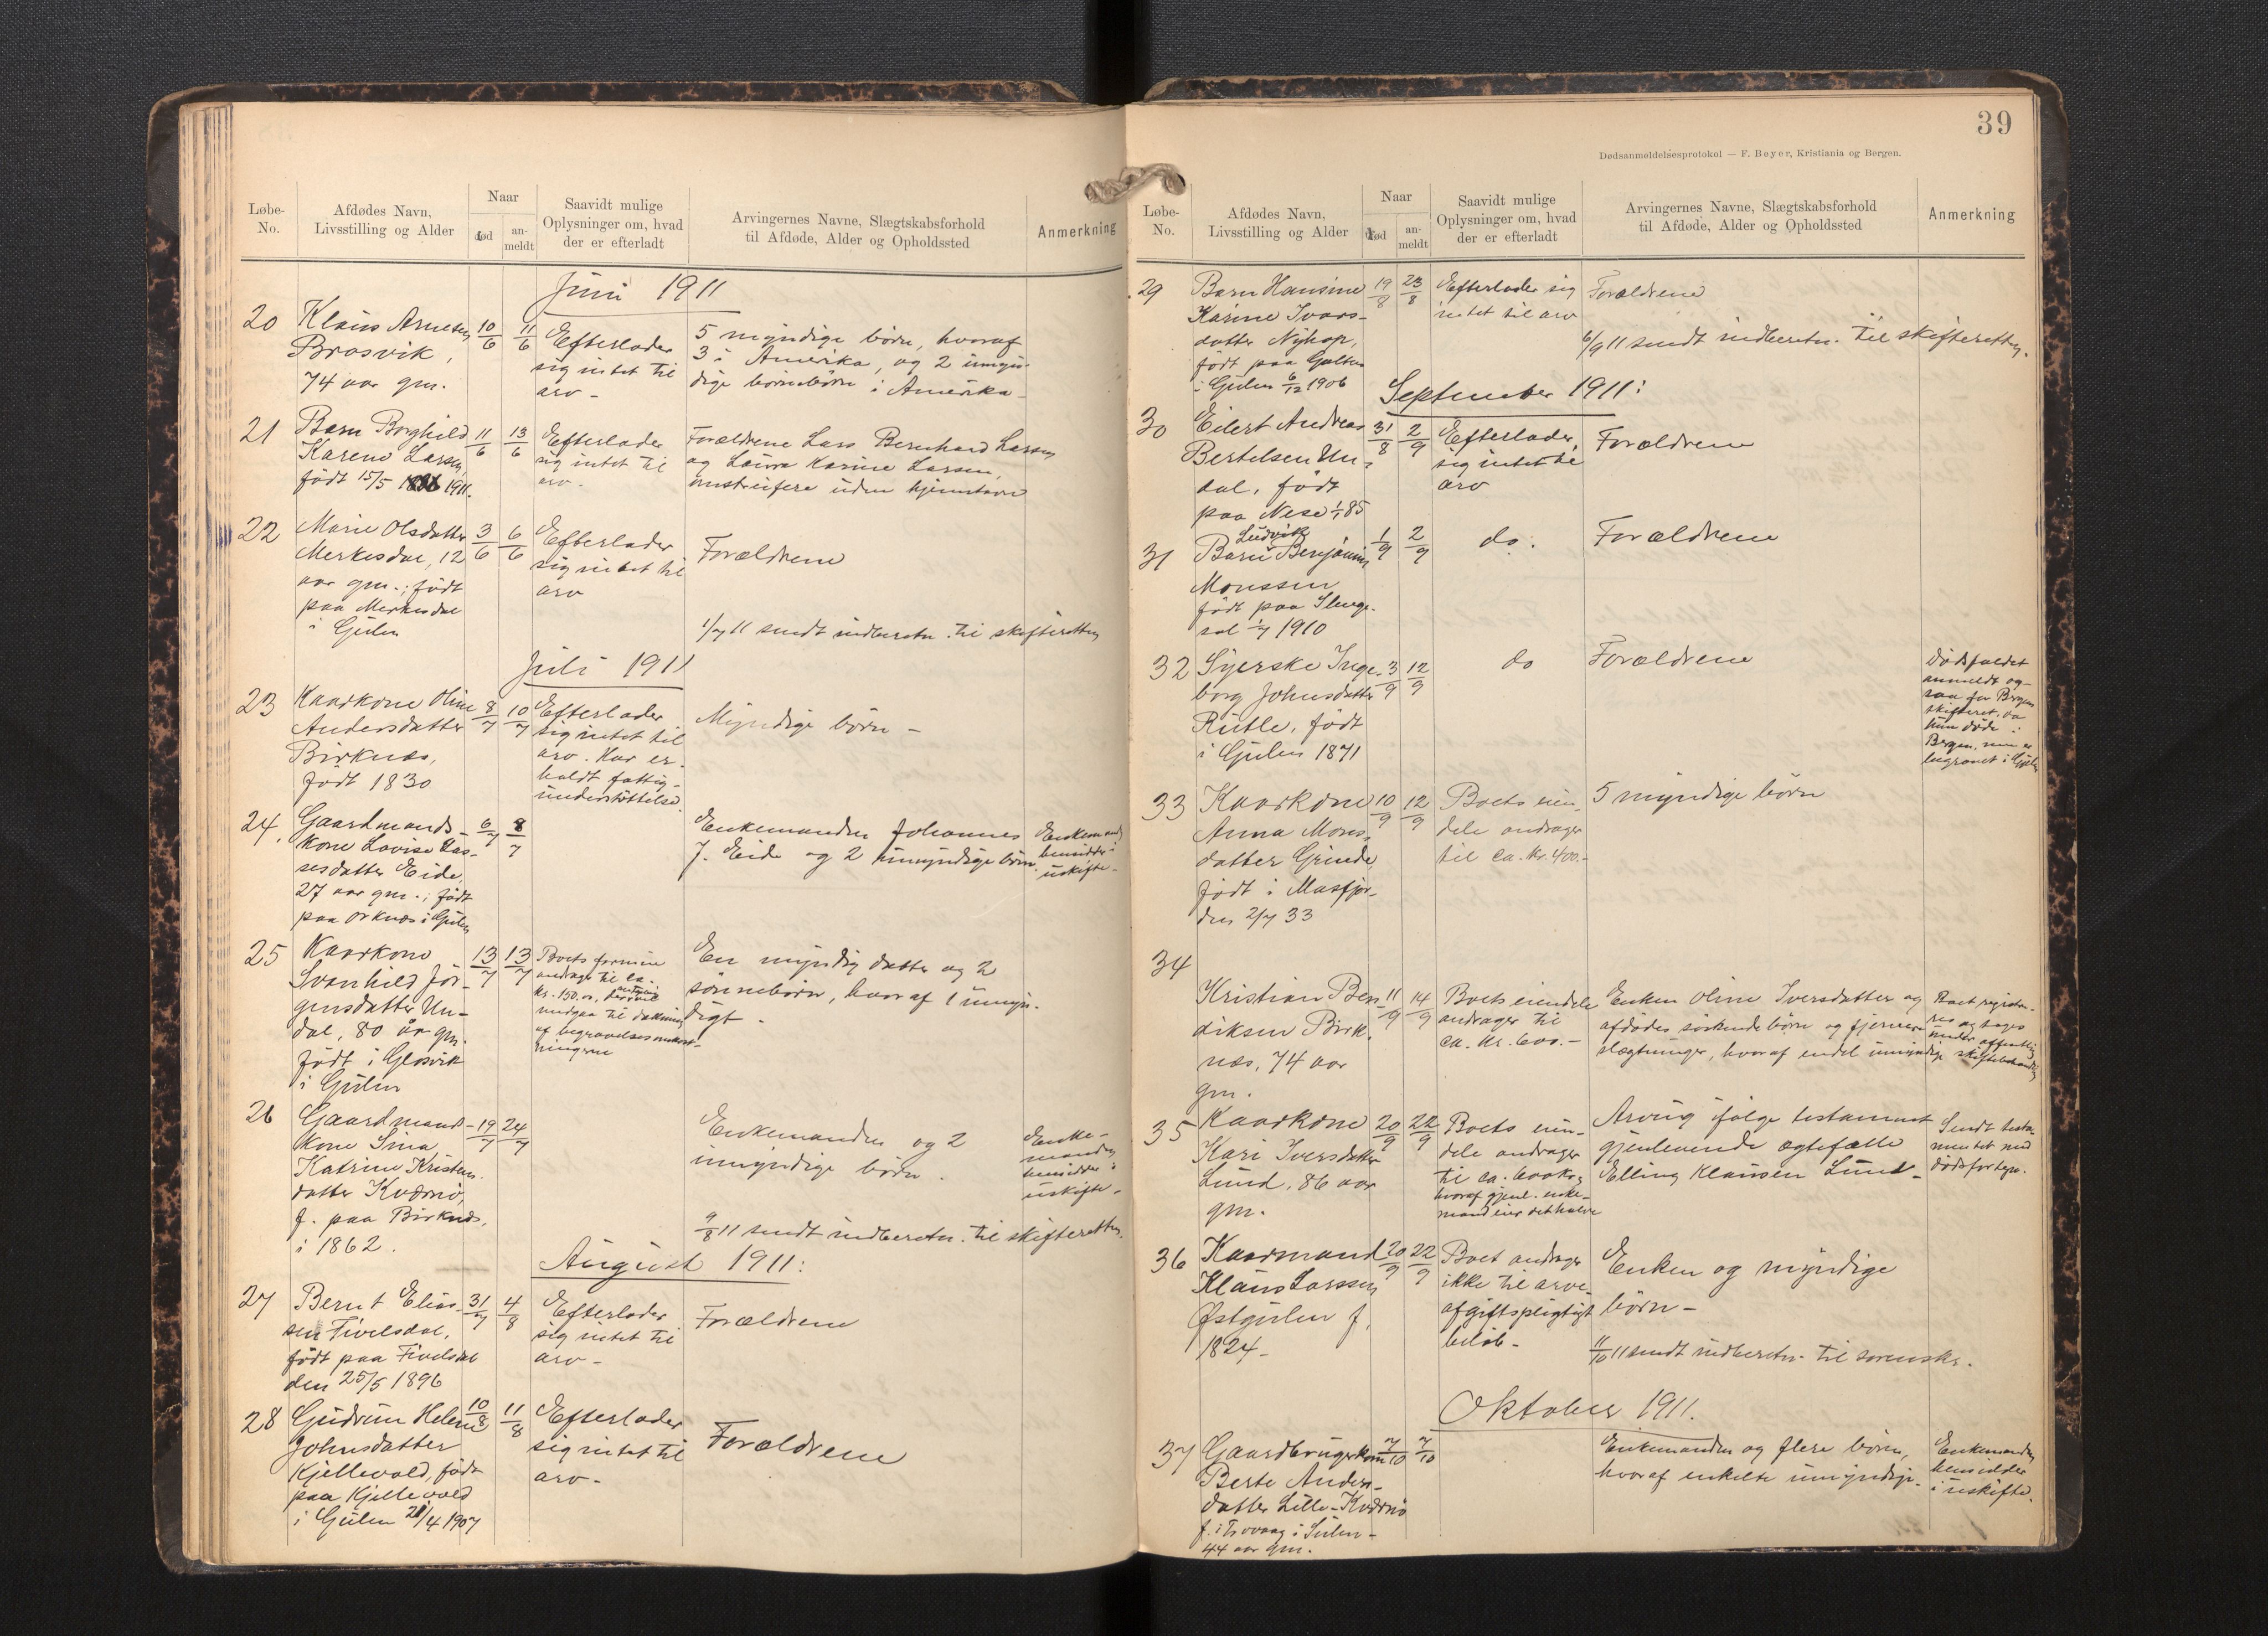 Løbe-
No.
Afdødes Navn,
Livsstilling og Alder
Naar
død
an-
meldt
Saavidt mulige
Oplysninger om, hvad
der er efterladt
Arvingernes Navne, Slægtskabsforhold
til Afdøde, Alder og Opholdssted
Anmerkning
Juni 1911
20
Klaus Arnesen
Brosvik,
74 aar gm.
10/6
11/6
Efterlader
sig intet til
arv -
5 myndige børn, hvoraf
3 i Amerika, og 2 umyn-
dige børnebørn i Amerika -
21
Barn Borghild
Karene Larsen,
født 15/5 1911.
11/6
13/6
Efterlader
sig intet til
arv -
Forældrene Lars Bernhard Larsen
og Laura Karine Larsen,
omstreifere uden hjemstavn
22
Marie Olsdatter
Merkesdal, 12
aar gm.; født
paa Merkesdal
i Gulen
3/6
6/6
Efterlader
sig intet til
arv
Forældrene
1/7 11 sendt indberetn. til skifteretten
Juli 1911
23
Kaarkone Oline
Andersdatter
Birknes,
født 1830
8/7
10/7
Efterlader
sig intet til
arv. Har er-
holdt fattig-
understøttelse.
Myndige børn -
24.
Gaardmands-
kone Lovise Las-
sesdatter Eide,
27 aar gm.; født
paa Orknes i Gulen
6/7
8/7
Enkemanden Johannes
J. Eide og 2 umyndige børn.
Enkemand
hensidder i
uskifte -
25
Kaarkone
Svanhild Jør-
gensdatter Un-
dal, 80 år gm.
født i Glosvik
i Gulen
13/7
13/7
Boets formue
andrager til ca.
kr. 150.00, der vil
medgaa til dækning
af begravelsesomkost-
ningerne
En myndig datter og 2
sønnebørn, hvoraf 1 umyn-
digt -
26
Gaardmands-
kone Sina
Katrine Kristens-
datter Kvernø,
f. paa Birknes,
i 1862.
19/7
24/7
Enkemanden og 2
umyndige børn.
Enke-
manden
hensidder i
uskifte -
9/8 11 sendt indberetn. til skifteretten.
August 1911:
27
Bernt Elias-
sen Tivelsdal,
født paa Tivelsdal
den 25/5 1896
31/7
4/8
Efterlader
sig intet til
arv -
Forældrene
28
Gudrun Helene
Johnsdatter
Kjellevold, født
paa Kjellevold
i Gulen 21/4 1907
10/8
11/8
Efterlader
sig intet til
arv -
Forældrene
39
Dødsanmeldelsesprotokol — F. Beyer, Kristiania og Bergen.
Løbe-
No.
Afdødes Navn,
Livsstilling og Alder
Naar
død
an-
meldt
Saavidt mulige
Oplysninger om, hvad
der er efterladt
Arvingernes Navne, Slægtskabsforhold
til Afdøde, Alder og Opholdssted
Anmerkning
29
Barn Hansine
Karine Ivars-
datter Nyhop,
født paa Galten
i Gulen 6/12 1906
19/8
23/8
Efterlader sig
intet til arv
Forældrene
6/9 11 sendt indberetn. til skifteretten.
September 1911:
30
Eilert Andreas
Bertelsen Un-
dal, født
paa Nese 1/1 85
31/8
2/9
Efterlader
sig intet til
arv
Forældrene
31
Ludvik
Barn Benjamin
Monssen
født paa Slenge-
sol 1/7 1910
1/9
2/9
do.
Forældrene
32
Syerske Inge-
borg Johnsdatter
Rutle, født
i Gulen 1871
3/9
12/9
do
Forældrene
Dødsfaldet
anmeldt og-
saa for Bergen
skifteret, da
hun døde i
Bergen, men er
begravet i Gulen
33
Kaarkone
Anna Mons-
datter Grinde,
født i Masfjor-
den 2/7 33
10/9
12/9
Boets eien-
dele andrager
til ca. kr. 400.-
5 myndige børn
34
Kristian Ben-
diksen Birk-
nes, 74 aar
gm.
11/9
14/9
Boets eiendele
andrager til
ca. kr. 600.-
Enken Oline Iversdatter og
afdødes søskendebørn og fjernere
slægtninger, hvoraf endel umyndige
Boet registre-
res og tages
under offentlig
skiftebehandling
35
Kaarkone
Kari Iversdatter
Lund, 86 aar
gm.
20/9
22/9
Boets eien-
dele andrager
til ca. 600 kr,
hvoraf gjenl. enke-
mand eier det halve
Arving ifølge testament
gjenlevende ægtefælle
Elling Klausen Lund -
Sendt testa-
mentet med
dødsfortegn.
36
Kaarmand
Klaus Larssen
Østgulen f.
1824 -
20/9
22/9
Boet andrager
ikke til arve-
afgiftspligtigt
beløb -
Enken og myndige
børn -
11/10 11 sendt indberetn. til sorenskr.
Oktober 1911.
37
Gaardbrugerkone
Berte Anders-
datter Lille-Kvernø
f. i Trovaag i Gulen -
44 aar gm.
7/10
7/10
Enkemanden og flere børn,
hvoraf enkelte umyndige -
Enkemanden
hensidder
i uskifte.